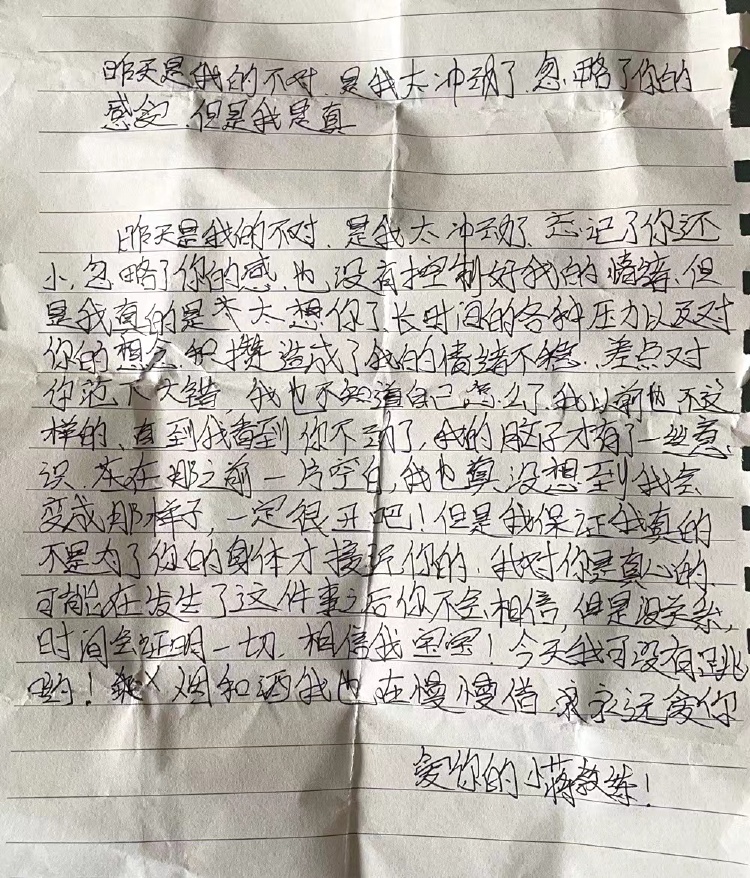 昨天是我的不对、是我太冲动了、忽略了你的
感受、但是我是真
昨天是我的不对、是我太冲动了、忘记了你还
小、忽略了你的感、也没有控制好我的情绪、但
是我真的是太太想你了、长时间的各种压力以及对
你的想念积攒造成了我的情绪不稳、差点对
你犯下大错,我也不知道自己怎么了、我以前也不这
样的、直到我看到你不动了,我的脑子才有了一丝意
识、在那之前一片空白,我也真没想到我会
变成那样子,一定很丑吧!但是我保证我真的
不是为了你的身体才接近你的、我对你是真心的、
可能在发生了这件事之后你不会相信,但是没关系,
时间会证明一切、相信我宝宝!今天我可没有跳
哟!烟和酒我也在慢慢借、永永远爱你
爱你的小蒋教练!